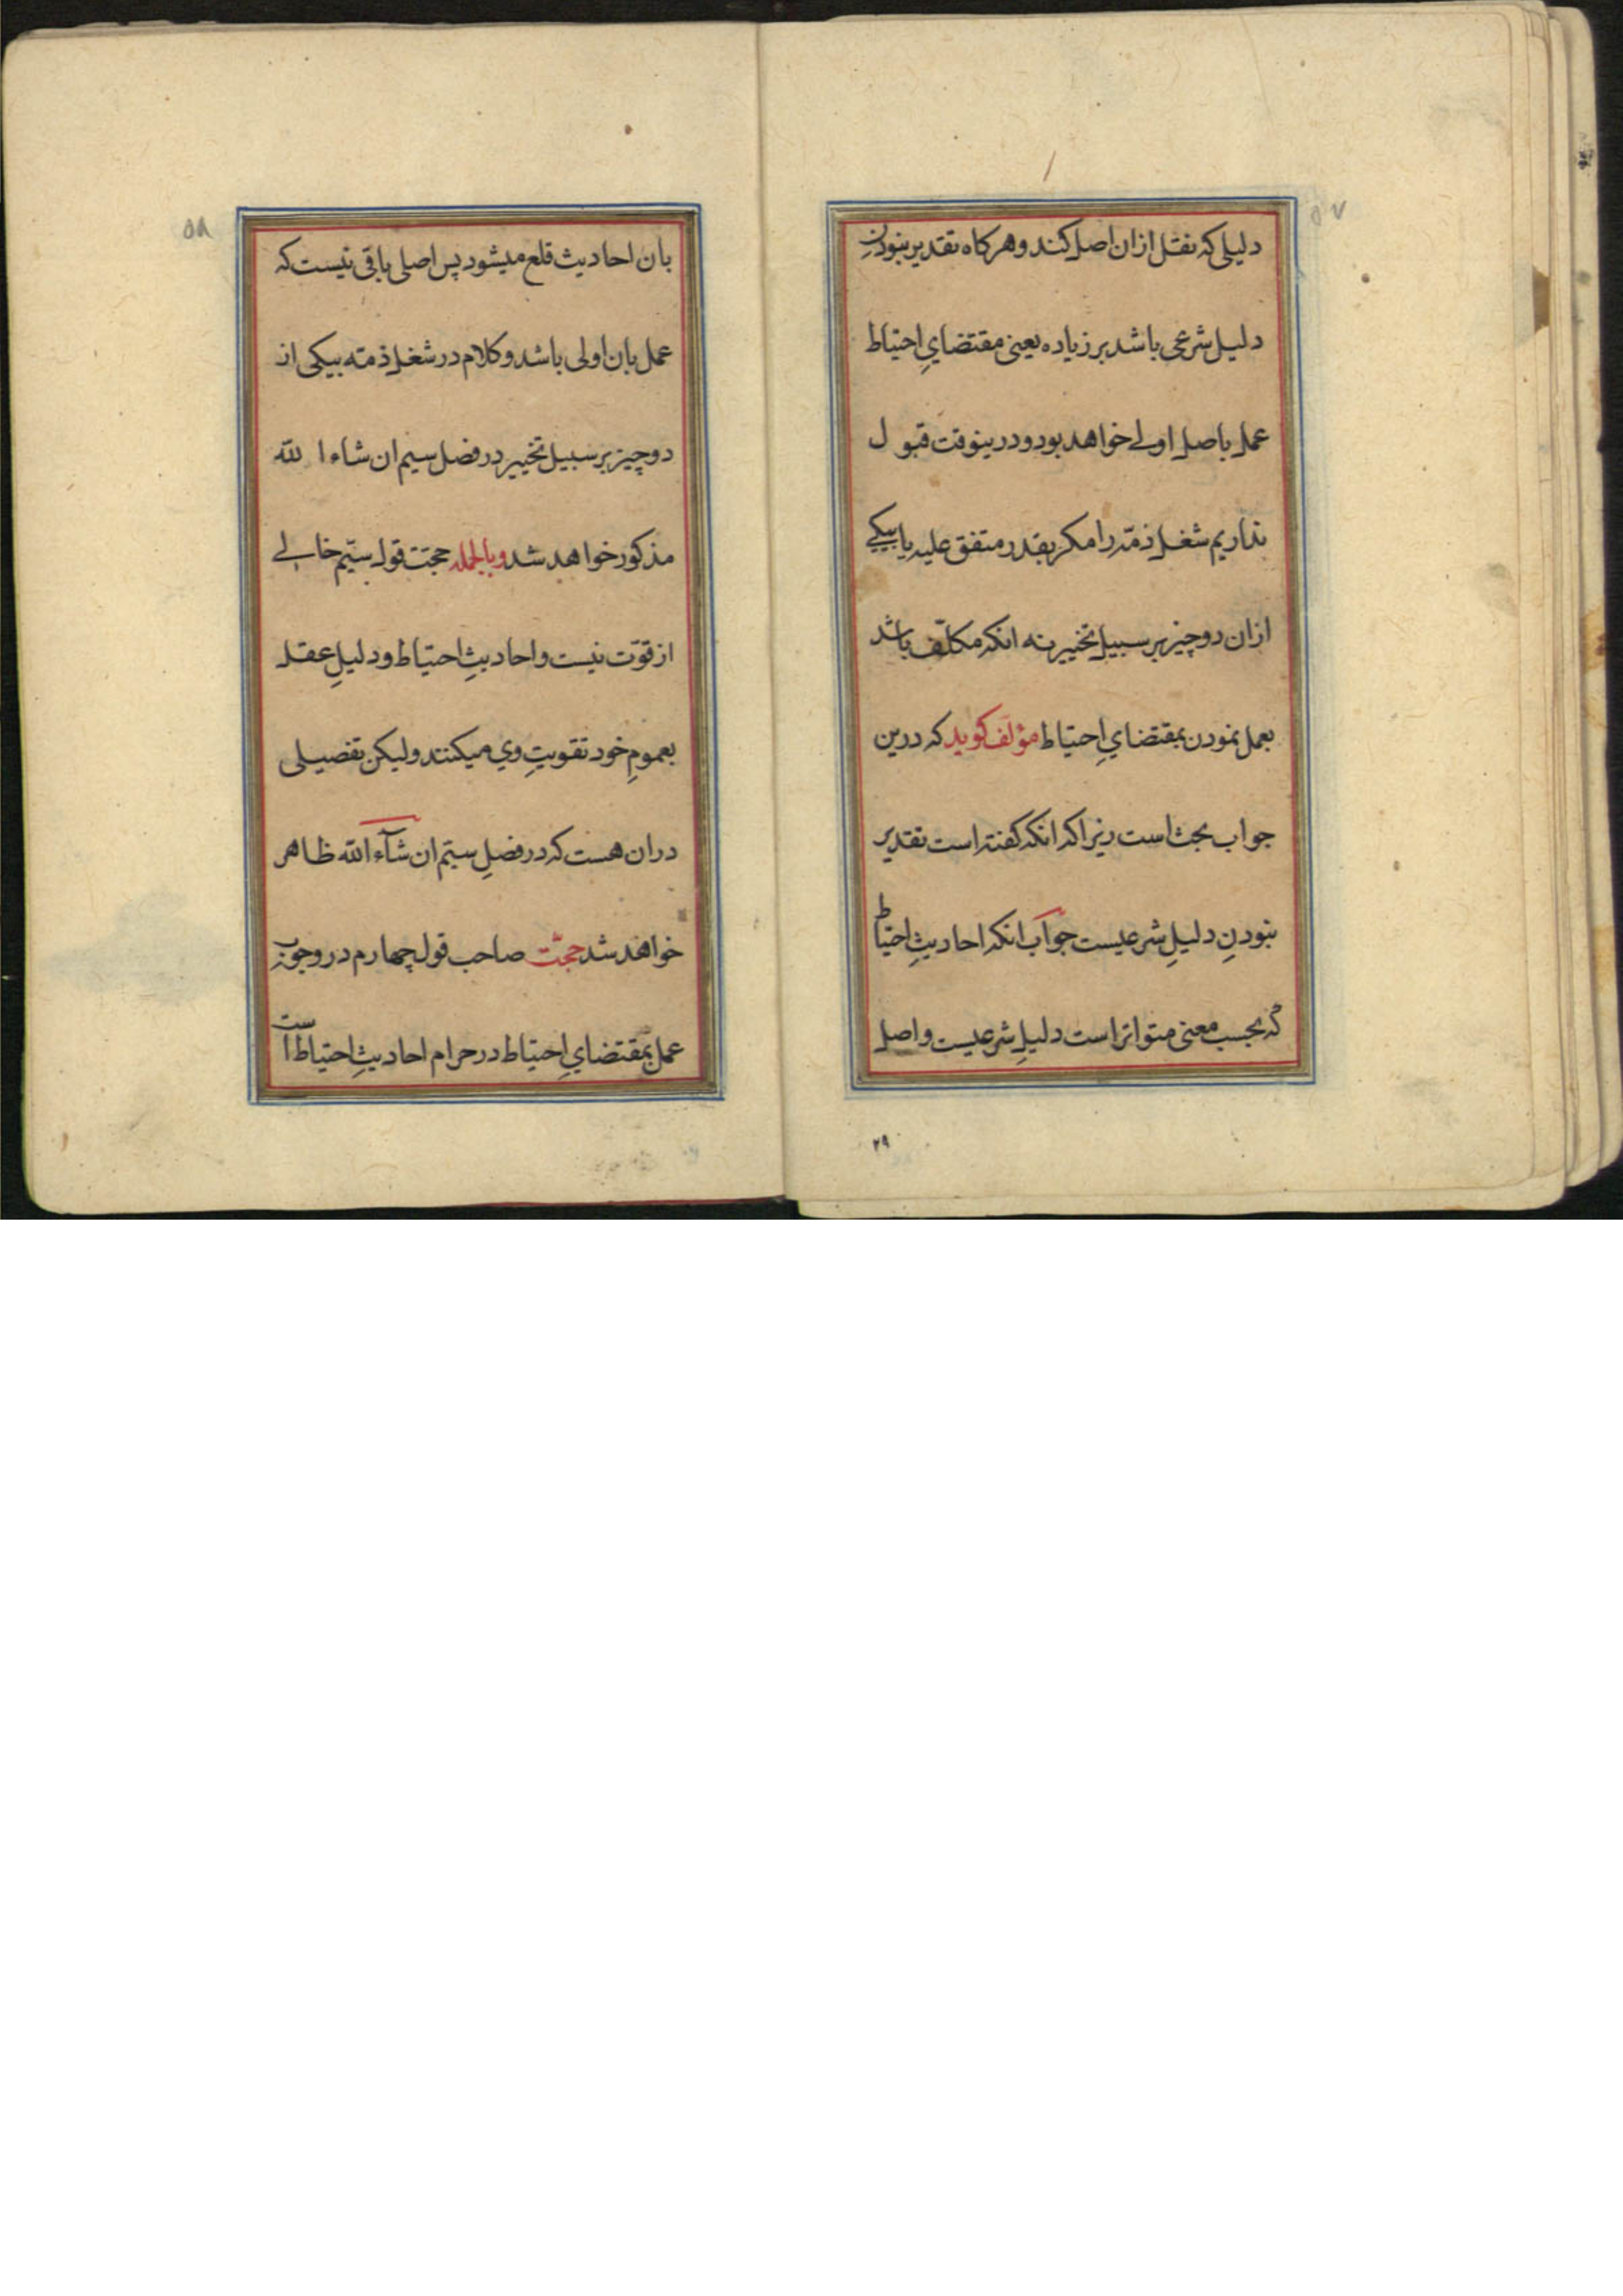 ۵۷
دلیلی که نقل ازان اصل کند و هرکاه تقدیر نبودنِ
دلیل شرعی باشد بر زیاده یعنی مقتضایِ احتیاط
عمل باصل اولے خواهد بود و درینوقت قبول
نداریم شغل ذمّه را مکر بقدر متفق علیه یا بیکے
ازان دو چیز بر سبیل تخییر نه انکه مکلّف باشد
بعمل نمودن بمقتضایِ احتیاط مؤلف کوید که درین
جواب بحث است زیرا که انکه کفته است تقدیر
نبودنِ دلیلِ شرعیست جواب انکه احادیثِ احتیاط
که بحسب معنی متواتر است دلیلِ شرعیست و اصل
۲۹
۵۸
بان احادیث قلع میشود پس اصلی باقی نیست که
عمل بان اولی باشد و کلام در شغل ذمته بیکی از
دو چیز بر سبیل تخییر در فصل سیم ان شاء الله
مذکور خواهد شد و بالجمله حجت قول سیّم خالے
از قوّت نیست و احادیثِ احتیاط و دلیلِ عقل
بعمومِ خود تقویتِ وی میکنند ولیکن تفصیلی
دران هست که در فصلِ سیّم ان شآء الله ظاهر
خواهد شد حجّت صاحب قول چهارم در وجوب
عمل بمقتضایِ احتیاط در حرام احادیثِ احتیاط است